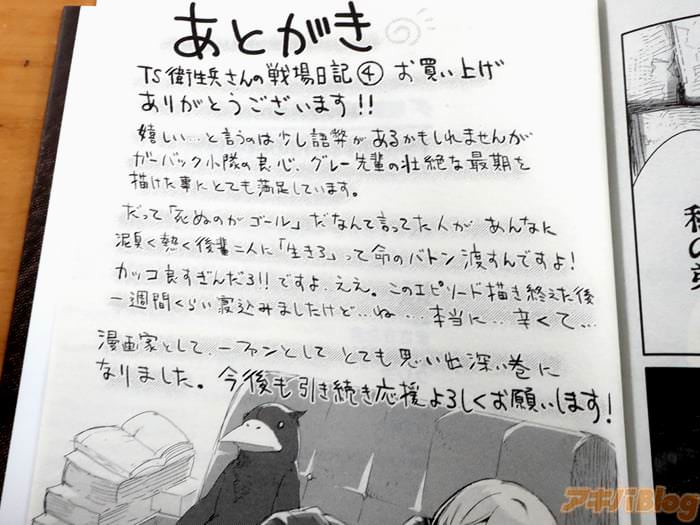 あとがき
TS衛生兵さんの戦場日記④ お買い上げ
ありがとうございます!!
嬉しい…と言うのは少し語弊があるかもしれませんが
ガーバック小隊の良心、グレー先輩の壮絶な最期を
描けた事にとても満足しています。
だって「死ぬのがゴール」だなんて言ってた人が あんなに
泥臭く熱く後輩二人に「生きろ」って命のバトン渡すんですよ!
カッコ良すぎんだろ!!ですよ、ええ。このエピソード描き終えた後
一週間くらい寝込みましたけど…ね…本当に…辛くて…
漫画家として、一ファンとして とても思い出深い巻に
なりました。今後も引き続き応援よろしくお願いします!
アキバBlog